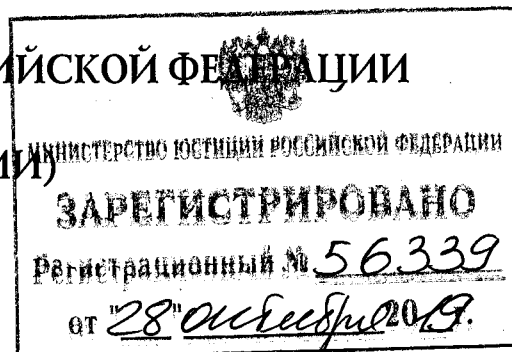 ИЙСКОЙ ФЕДЕРАЦИИ
МИНИСТЕРСТВО ЮСТИЦИИ РОССИЙСКОЙ ФЕДЕРАЦИИ
ИИ)
ЗАРЕГИСТРИРОВАНО
Регистрационный № 56339
от "28" октября 2019.